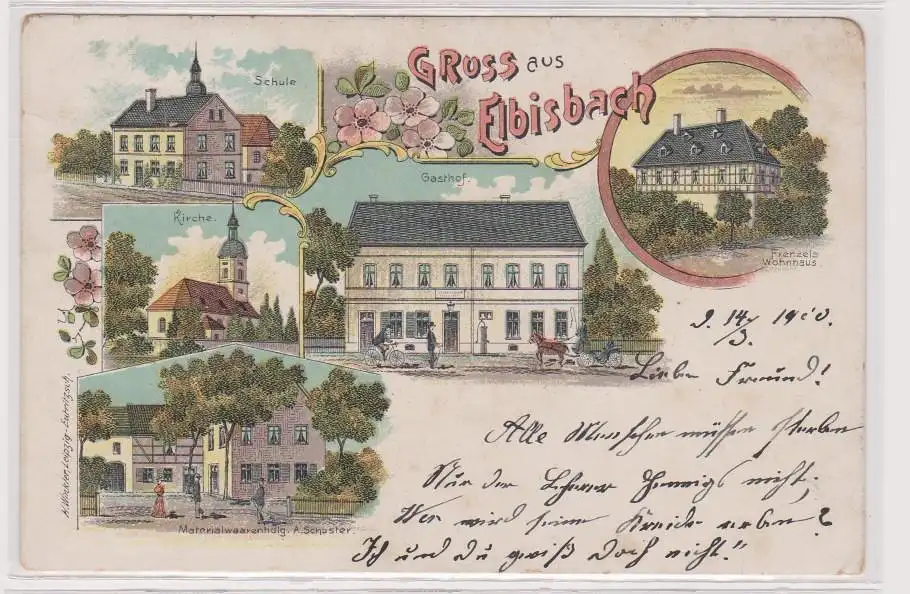 Gruss aus
Elbisbach
Schule
Kirche.
Gasthof.
Frenzels
Wohnhaus.
Materialwaarenhdlg. A. Schuster.
A. Winkler, Leipzig-Eutritzsch.
14/3. 1900.
Lieber Freund!
Alle Menschen müssen sterben
Nur der Lehrer Hennigs nicht.
Wer wird seine Kreide erben?
Ich und du gewiß doch nicht!"